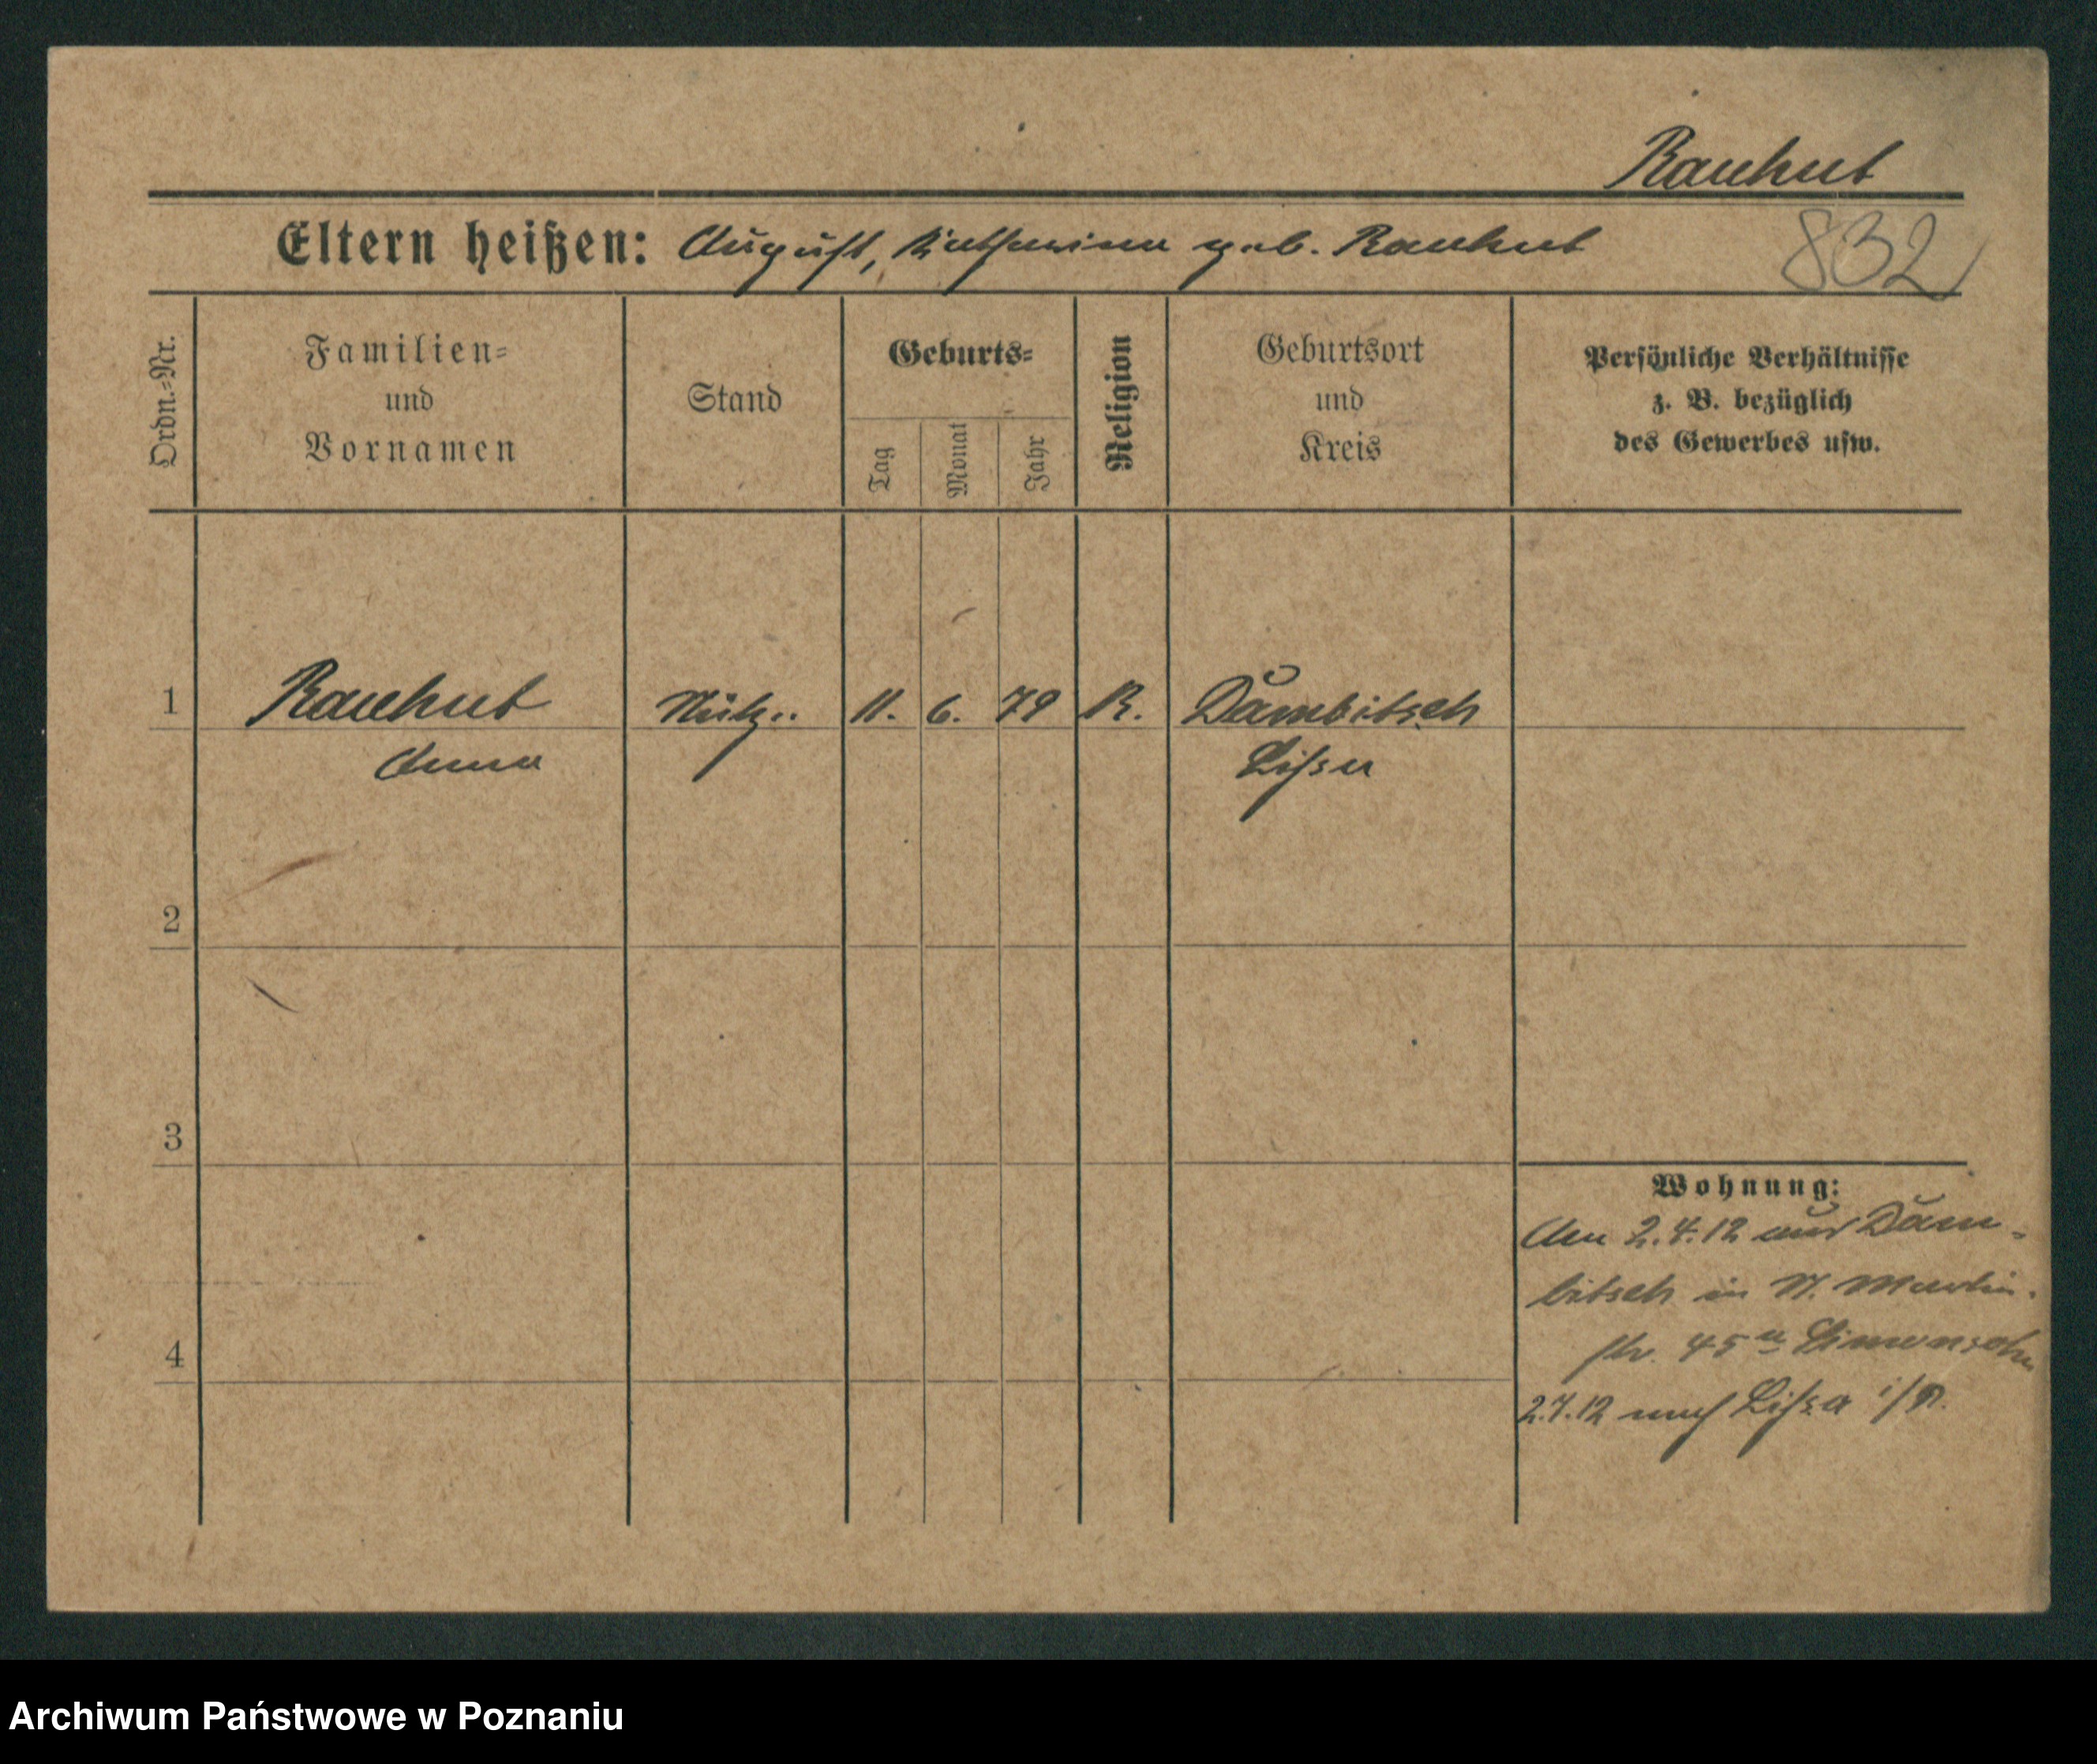 Rauhut
Eltern heißen: August, Katharina geb. Rauhut
832
Ordn.-Nr.
Familien-
und
Vornamen
Stand
Geburts-
Tag
Monat
Jahr
Religion
Geburtsort
und
Kreis
Persönliche Verhältnisse
z. B. bezüglich
des Gewerbes usw.
1 Rauhut 11. 6. 79 K. Dambitsch
Anna Lissa
2
3
4
Wohnung:
Am 2.4.12 aus Dam-
bitsch in St. Martin-
str. 45 Simonsohn
2.7.12 nach Lissa i/P.
Archiwum Państwowe w Poznaniu